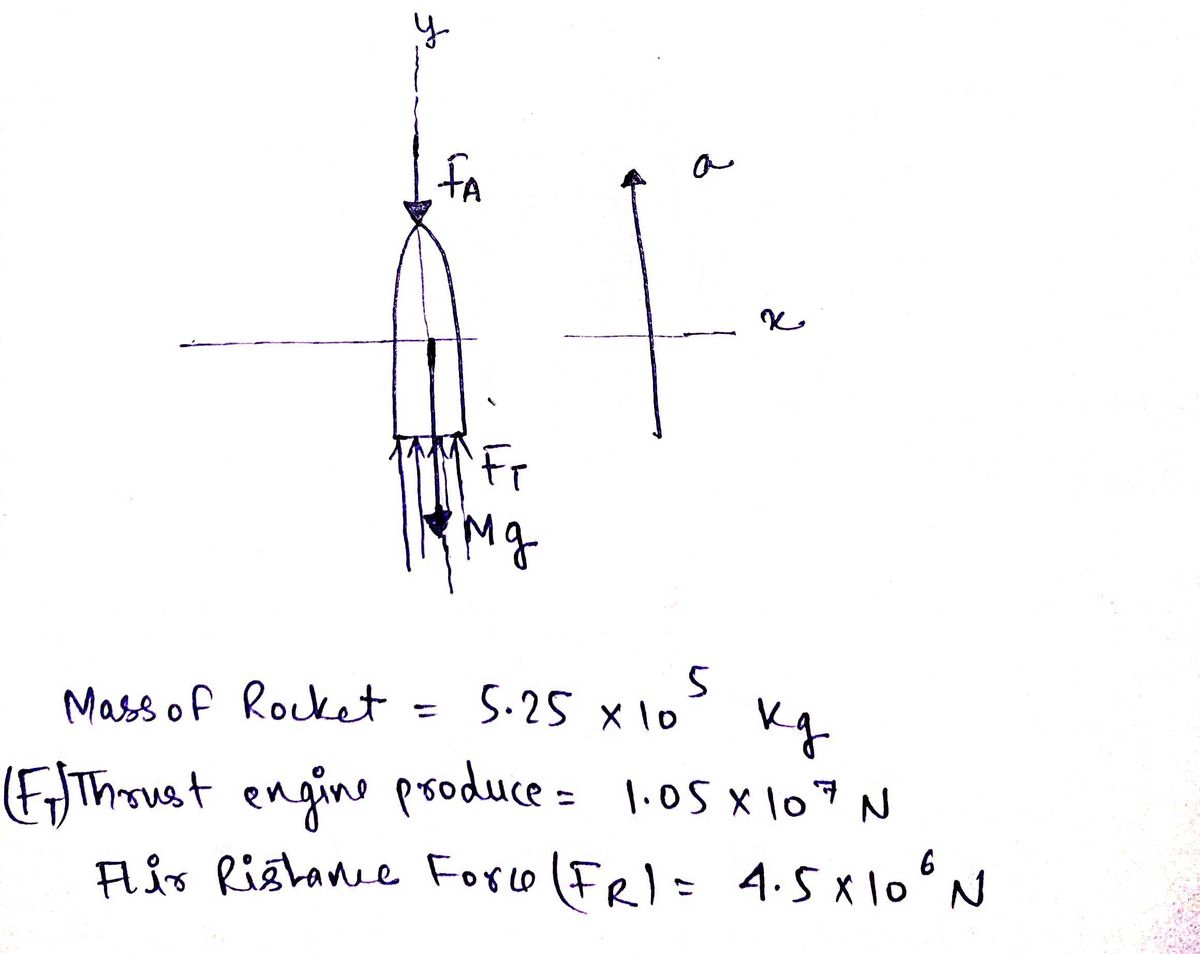 y
fA
a
x
FT
Mg
Mass of Rocket = 5.25 x 10⁵ Kg
(FT) Thrust engine produce = 1.05 x 10⁷ N
Air Ristance Force (FR) = 4.5 x 10⁶ N